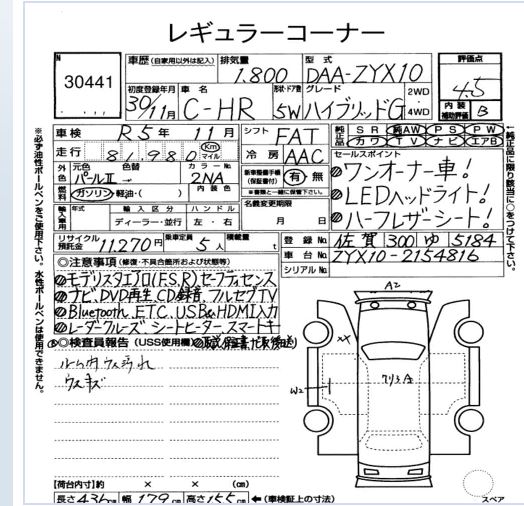 レギュラーコーナー
N
30441
車歴 (自家用以外は記入) 排気量 1.800 型式 DAA-ZYX10
評価点 4.5
初度登録年月 30/11月 車名 C-HR 形状・ドア数 5W グレード ハイブリッドG 2WD・4WD
内装補助評価 B
車検 R5年 11月 シフト FAT
走行 81,980 Km マイル 冷房 AAC
純正品 SR 純AW PS PW
カワ TV ナビ エアB
外色 元色 パールII 色替 → カラーNo. 2NA 新車整備手帳(保証書付) 有・無
燃料 ガソリン・軽油・( ) 内装色
※書類と一緒に保管下さい。
セールスポイント
ワンオーナー車!
LEDヘッドライト!
ハーフレザーシート!
輸入車用 年式 輸入区分 ハンドル 名義変更期限
ディーラー・並行 左・右 月 日
リサイクル預託金 11,270円 乗車定員 5人 積載量 t
登録No. 佐賀 300 ゆ 5184
車台No. ZYX10-2154816
シリアルNo.
◎注意事項 (修復・不具合箇所および状態等)
モデリスタエアロ(F.S.R)セーフティセンス
ナビ、DVD再生 CD録音 フルセグTV
Bluetooth、ETC、USB&HDMI入力
レーダークルーズ シートヒーター スマートキー
◎検査員報告 (USS使用欄)
ウスキズ
A2
XX
W2
クリ3
【荷台内寸】約 × × (cm)
長さ 436cm 幅 179cm 高さ 155cm ←(車検証上の寸法)
スペア
※必ず油性ボールペンをご使用下さい。水性ボールペンは使用できません。
←純正品に限り該当に○をつけて下さい。